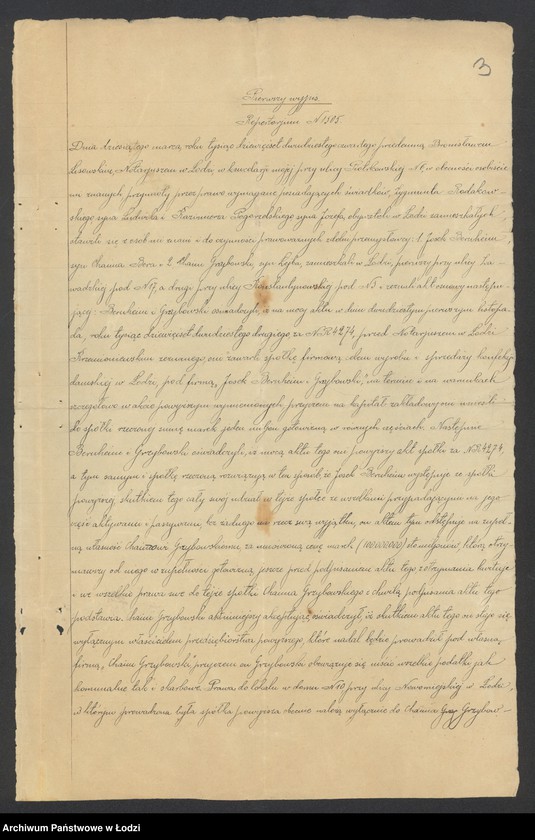 3
Pierwszy wypis
Repertorjum № 1385
Dnia dziesiątego marca, roku tysiąc dziewięćset dwudziestego czwartego przedemną Bronisławem
Lisowskim, Notarjuszem w Łodzi w kancelarji mojej przy ulicy Piotrkowskiej № w obecności osobiście
mi znanych przymioty przez prawo wymagane posiadających świadków, Zygmunta
syna Ludwika i Kazimierza syna Józefa, obywateli w Łodzi zamieszkałych
stawili się osobiście znani i do czynności prawnych zdolni przemysłowcy: 1. Josek Bernheim
syn Chaima Bera i 2. Chaim Grzybowski, syn zamieszkali w Łodzi, pierwszy przy ulicy Za-
wadzkiej pod № 7, a drugi przy ulicy Konstantynowskiej pod № 3 i zeznali akt osnowy następu-
jącej: Bernheim i Grzybowski oświadczyli, iż na mocy aktu w dniu dwudziestym pierwszym listopa-
da, roku tysiąc dziewięćset dwudziestego drugiego, za № R. 4274, przed Notarjuszem w Łodzi
Krzemieniewskim zeznanego, oni zawarli spółkę firmową celem wyrobu i sprzedaży konfekcji
damskiej w Łodzi, pod firmą, Josek Bernheim i Grzybowski, na terminie i na warunkach
szczegółowo w akcie powyższym wymienionych, przyczem na kapitał zakładowy oni wnieśli
do spółki rzeczonej sumę marek gotowizną w równych częściach. Następnie
Bernheim i Grzybowski oświadczyli, iż mocą aktu tego oni powyższy akt spółki za № R. 4274,
a tym samym i spółkę rzeczoną rozwiązują w ten sposób, że Josek Bernheim występuje ze spółki
powyższej skutkiem tego cały swój udział w tejże spółce ze wszelkimi przypadającymi na jego
część aktywami i pasywami, bez żadnego na rzecz swą wyjątku, on aktem tym odstępuje na zupeł-
ną własność Chaimowi Grzybowskiemu za umówioną cenę marek (100000000) sto miljonów, którą otrzy-
mawszy od niego w zupełności gotowizną jeszcze przed podpisaniem aktu tego, z otrzymania kwituje
i we wszelkie prawa swe do tejże spółki Chaima Grzybowskiego z chwilą podpisania aktu tego
podstawia. Chaim Grzybowski akt niniejszy akceptując, oświadczył, iż skutkiem aktu tego on staje się
wyłącznym właścicielem przedsiębiorstwa powyższego, które nadal będzie prowadził pod własną
firmą, „Chaim Grzybowski", przyczem on Grzybowski obowiązuje się uiścić wszelkie podatki jak
komunalne tak i skarbowe. Prawa do lokalu w domu № 10 przy ulicy Nowomiejskiej w Łodzi,
w którym prowadzona była spółka powyższa obecnie należą wyłącznie do Chaima Grzybow-
Archiwum Państwowe w Łodzi